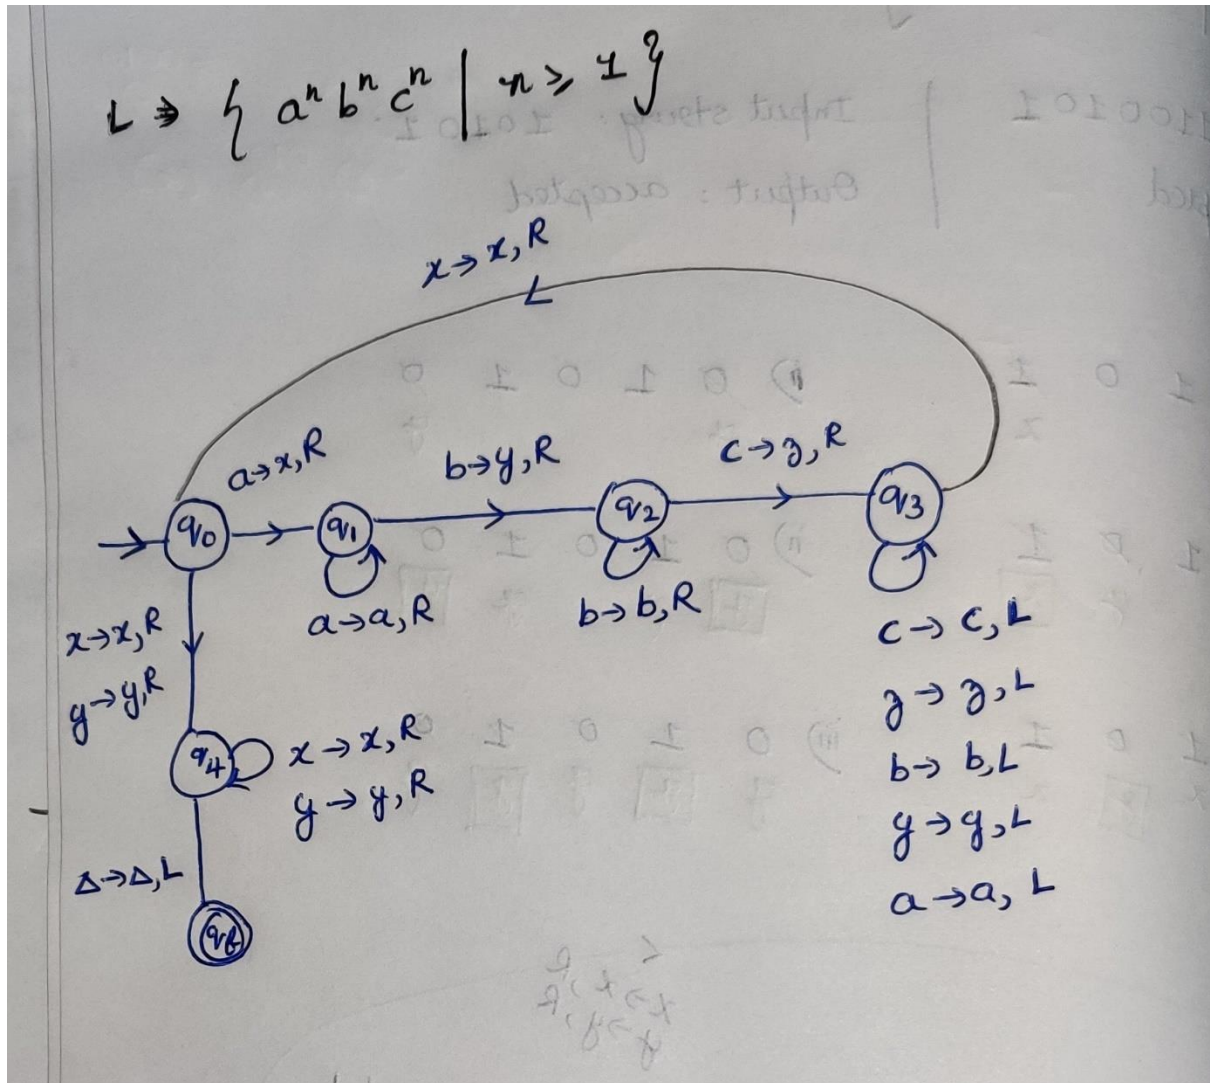 L ⇒ { aⁿ bⁿ cⁿ | n ⩾ 1 }
x→x, R
a→x, R
b→y, R
c→z, R
q0
q1
q2
q3
a→a, R
b→b, R
c→c, L
z→z, L
b→b, L
y→y, L
a→a, L
x→x, R
y→y, R
q4
x→x, R
y→y, R
Δ→Δ, L
qf